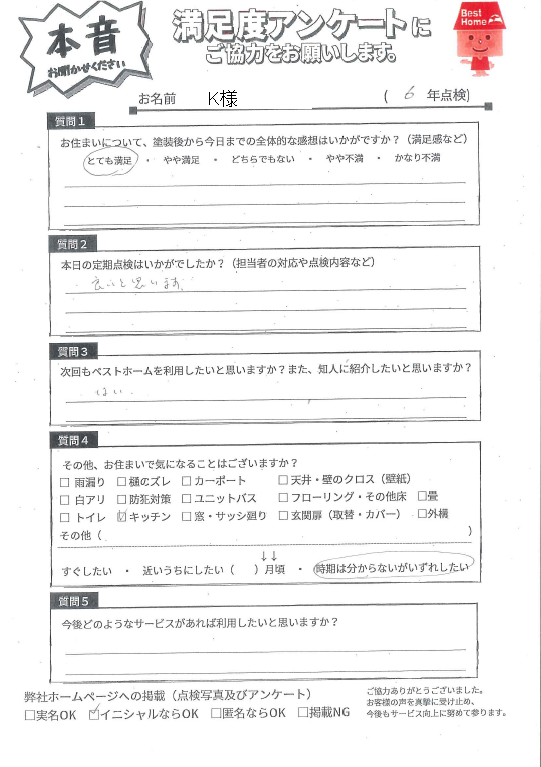 本音
お聞かせください
満足度アンケートに
ご協力をお願いします。
Best Home
お名前 K様 ( 6 年点検)
質問1
お住まいについて、塗装後から今日までの全体的な感想はいかがですか？（満足感など）
とても満足 ・ やや満足 ・ どちらでもない ・ やや不満 ・ かなり不満
質問2
本日の定期点検はいかがでしたか？（担当者の対応や点検内容など）
良いと思います。
質問3
次回もベストホームを利用したいと思いますか？また、知人に紹介したいと思いますか？
はい.
質問4
その他、お住まいで気になることはございますか？
□ 雨漏り □ 樋のズレ □ カーポート □ 天井・壁のクロス（壁紙）
□ 白アリ □ 防犯対策 □ ユニットバス □ フローリング・その他床 □畳
□ トイレ ☑ キッチン □ 窓・サッシ廻り □ 玄関扉（取替・カバー） □外構
その他（ ）
↓↓
すぐしたい ・ 近いうちにしたい（ ）月頃 ・ 時期は分からないがいずれしたい
質問5
今後どのようなサービスがあれば利用したいと思いますか？
弊社ホームページへの掲載（点検写真及びアンケート）
□実名OK ☑イニシャルならOK □匿名ならOK □掲載NG
ご協力ありがとうございました。
お客様の声を真摯に受け止め、
今後もサービス向上に努めて参ります。